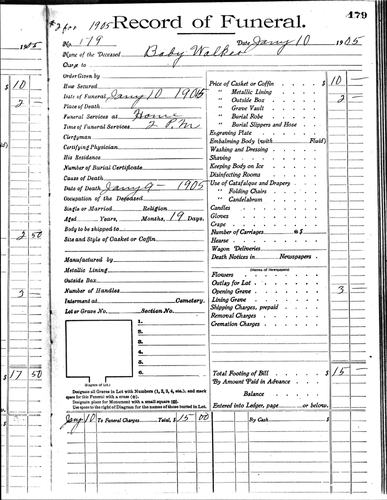 #2 for 1905
Record of Funeral.
179
No. 179
Date Jany 10 1905
Name of the Deceased Baby Walker
Charge to
Order Given by
How Secured
Date of Funeral Jany 10 1905
Place of Death
Funeral Services at Home
Time of Funeral Services 2 P.M.
Clergyman
Certifying Physician
His Residence
Number of Burial Certificate
Cause of Death
Date of Death Jany 9 - 1905
Occupation of the Deceased
Single or Married Religion
Aged Years, Months, 19 Days.
Body to be shipped to
Size and Style of Casket or Coffin
Manufactured by
Metallic Lining
Outside Box
Number of Handles
Interment at Cemetery.
Lot or Grave No. Section No.
1.
2.
3.
4.
5.
6.
(Diagram of Lot.)
Designate all Graves in Lot with Numbers (1, 2, 3, 4, etc.), and mark
space for this Funeral with a cross (x).
Designate place for Monument with a small square (□).
Use space to the right of Diagram for the names of those buried in Lot.
Price of Casket or Coffin $ 10 —
" Metallic Lining
" Outside Box 2 —
" Grave Vault
" Burial Robe
" Burial Slippers and Hose
Engraving Plate
Embalming Body (with Fluid)
Washing and Dressing
Shaving
Keeping Body on Ice
Disinfecting Rooms
Use of Catafalque and Drapery
" Folding Chairs
" Candelabrum
Candles
Gloves
Crape
Number of Carriages @ $
Hearse
Wagon Deliveries
Death Notices in Newspapers
(Names of Newspapers)
Flowers
Outlay for Lot
Opening Grave 3
Lining Grave
Shipping Charges, prepaid
Removal Charges
Cremation Charges
Total Footing of Bill $ 15 —
By Amount Paid in Advance
Balance
Entered into Ledger, page or below.
Jany 10 To Funeral Charges Total, $ 15 00
By Cash $
1905
$ 10 —
2 —
2 50
3
$ 17 50
$